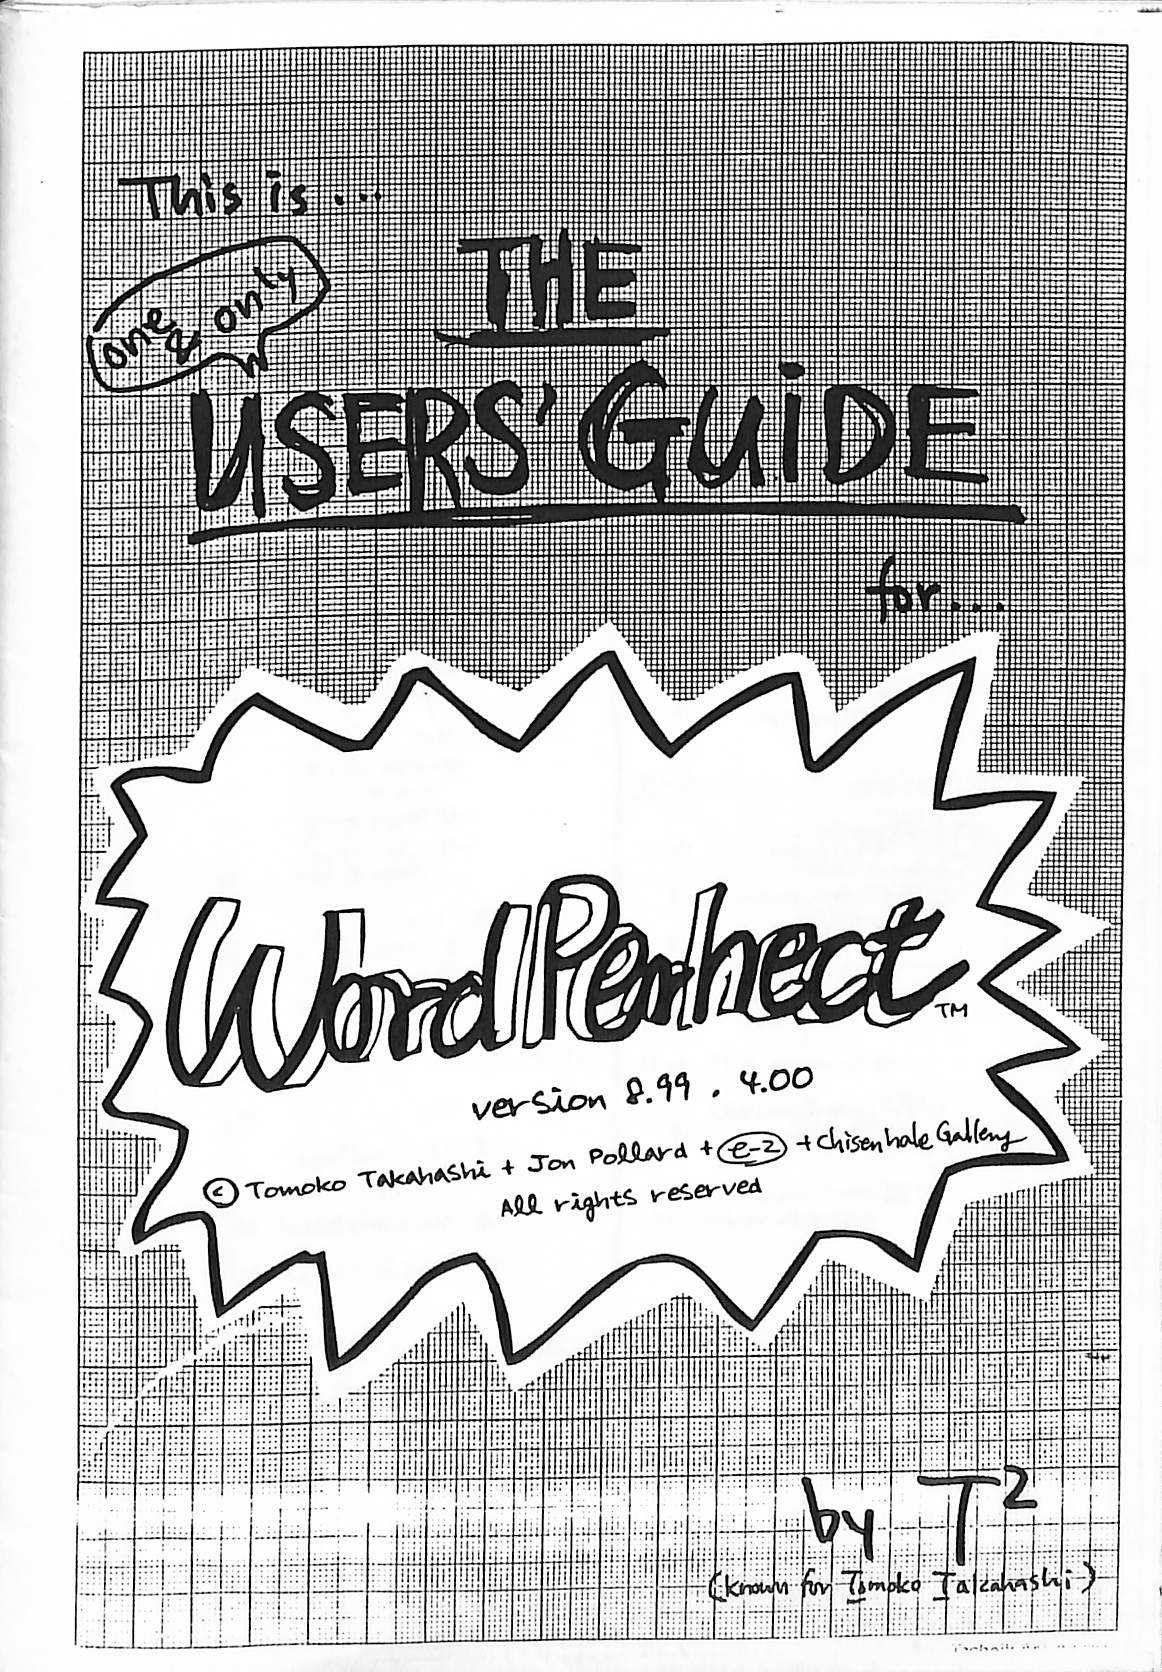 This is...
one & only
THE
USERS' GUiDE
for...
WordPerhect™
version 8.99 . 4.00
© Tomoko Takahashi + Jon Pollard + e-2 + Chisenhale Gallery
All rights reserved
by T²
(known for Tomoko Takahashi)